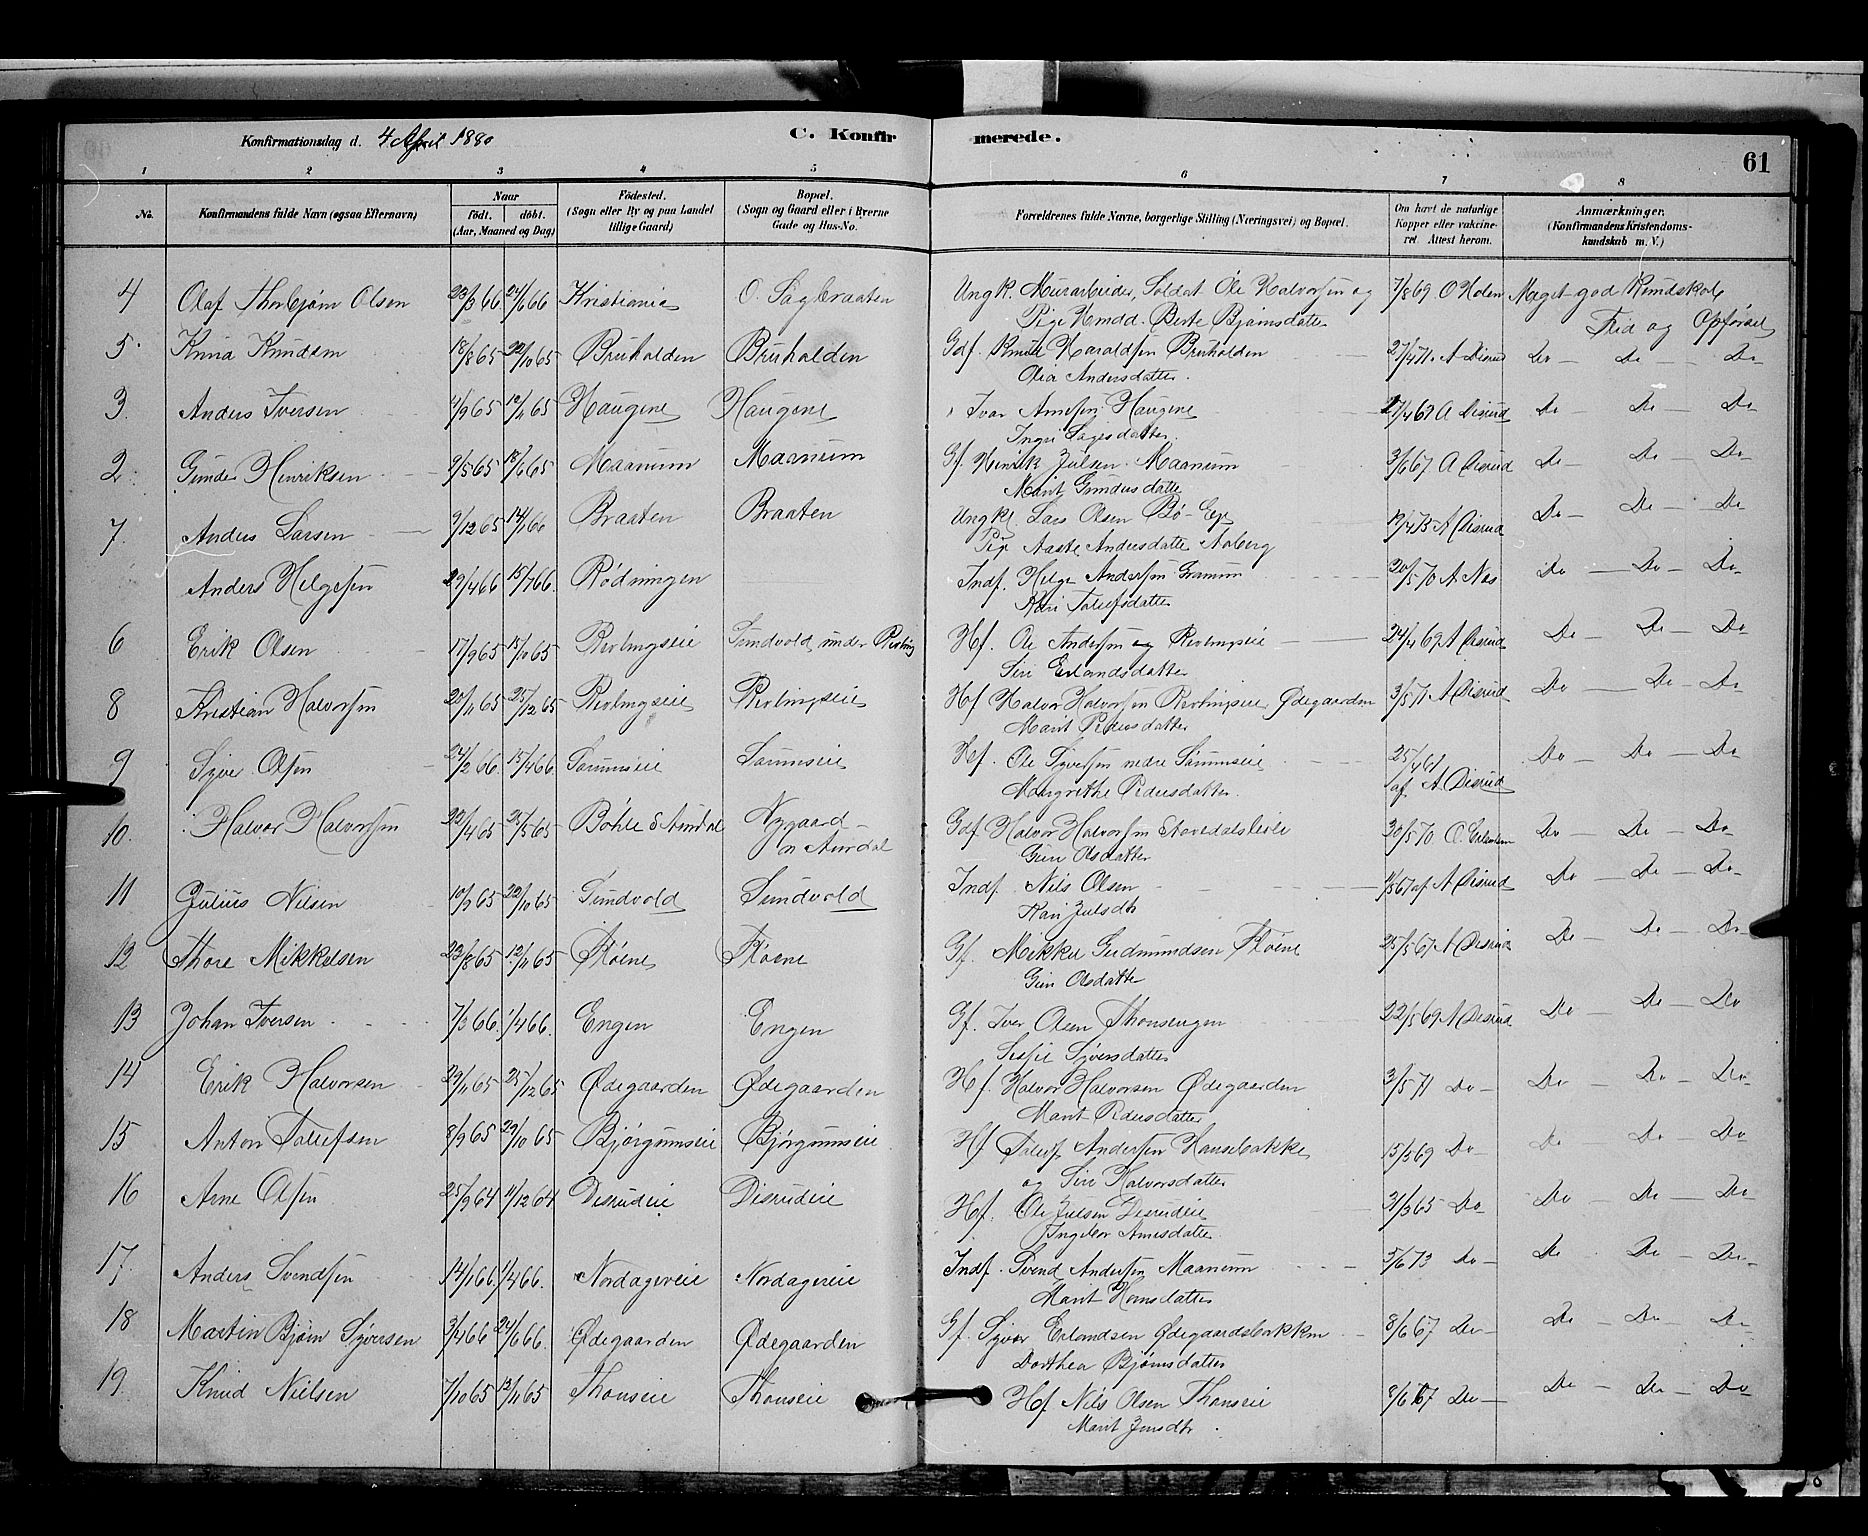 Konfirmationsdag d. 4 April 1880
C. Konfir merede.
61
1 2 3 4 5 6 7 8
No. Konfirmandens fulde Navn (ogsaa Efternavn) Naar født. døbt. (Aar, Maaned og Dag) Fødested. (Sogn eller By og paa Landet tillige Gaard) Bopæl. (Sogn og Gaard eller i Byerne Gade og Hus-No. Forældrenes fulde Navne, borgerlige Stilling (Næringsvei) og Bopæl. Om havt de naturlige Kopper eller vakcineret Attest herom. Anmærkninger. (Konfirmandens Kristendomskundskab m. V.)
4 Olaf Thorbjørn Olsen 66 24/6 66 Kristiania Ungk. Murarbeider, Soldat Ole Halvorsen og 7/8 69 O Holen Meget god Kundskab
Pige Berte Bjørnsdatter Flid og Opførsel
5 Knud Knudsen 18/8 65 22/10 65 Bruhalden Bruhalden Gdf. Knud Haraldsen Bruhalden 27/4 71. A Disrud Do — Do — Do
Olia Andersdatter.
3 Anders Iversen 4/9 65 12/11 65 Haugene Haugene Ivar Arnesen Haugene A Disrud Do — Do — Do
Ingri
2 Gunder Henriksen 9/5 65 18/6 65 Maanum Maanum Gf. Henrik Julsen Maanum 3/6 67 A Disrud Do — Do — Do
Marit Gundersdatter
7. Anders Larsen 9/12 65 14/1 66 Braaten Braaten Ungkl. Lars Olsen Bø-Eje 19/4 73 A Disrud Do — Do — Do
Pige Aaste Andersdatter Aaberg
Anders Helgesen 29/4 66 15/7 66. Rødningen Indf. Helge Andersen Granum 20/5 70 A. Næs Do — Do — Do
Kari Tolefsdatter
6 Erik Olsen 17/9 65 15/10 65 Sundvold under Hf. Ole Andersen og A Disrud Do — Do — Do
Siri Erlandsdatter
8 Kristian Halvorsen 20/11 65 25/12 65 Hf Halvor Halvorsen Ødegaarden 3/5 71 A Disrud Do — Do — Do
Marit Pedersdatter
9 Syver Olsen 24/2 66 15/4 66 Sørumseie Sørumseie Hf. Ole Syversen nedre Sørumseie 25/4 67 Do — Do — Do
Margrethe Pedersdatter. af A Disrud
10. Halvor Halvorsen 23/4 65 25/5 65 Bøhle S Aurdal Nygaard Gdf. Halvor Halvorsen 30/5 70 Do — Do — Do
n Aurdal Guri Olsdatter
11 Julius Nilsen 10/9 65 22/10 65 Sundvold Sundvold Indf. Nils Olsen af A Disrud Do — Do — Do
Kari Julsdtr
12 Thore Mikkelsen 22/8 65 12/11 65 Støene Støene Gf. Mikkel Gudmundsen Støene 25/5 67 A Disrud Do — Do — Do
Guri Olsdatter
13 Johan Iversen 7/3 66 1/4 66. Engen Engen Gf. Iver Olsen Thonsengen 22/5 69 A Disrud Do — Do — Do
Syversdatter
14 Erik Halvorsen 29/11 65 25/12 65 Ødegaarden Ødegaarden Hf. Halvor Halvorsen Ødegaarden 3/5 71 Do — Do — Do — Do
Marit Pedersdatter
15 Anton Tolefsen 8/9 65 29/10 65 Bjørgumseie Bjørgumseie Hf Tolef Andersen Hansebakke 15/5 69 Do — Do — Do — Do
og Siri Halvorsdatter
16 Arne Olsen 25/9 64 11/12 64 Disrudeie Disrudeie Hf. Ole Julsen Disrudeie Do Do — Do — Do
Ingebor Arnesdatter
17. Anders Svendsen 14/1 66. 1/4 66. Nordagereie Nordagereie Indf. Svend Andersen Maanum 5/6 73 Do — Do — Do — Do
Marit
18 Martin Bjørn Syversen 3/4 66 24/6 66. Ødegaarden Ødegaarden Gf. Syver Erlandsen Ødegaardsbakken 8/6 67 Do — Do — Do — Do
Dorthea Bjørnsdatter
19. Knud Nielsen 7/10 65 12/11 65 Thonseie Thonseie Hf Nils Olsen Thonseie 8/6 67 Do — Do — Do — Do
Marit Jensdtr.